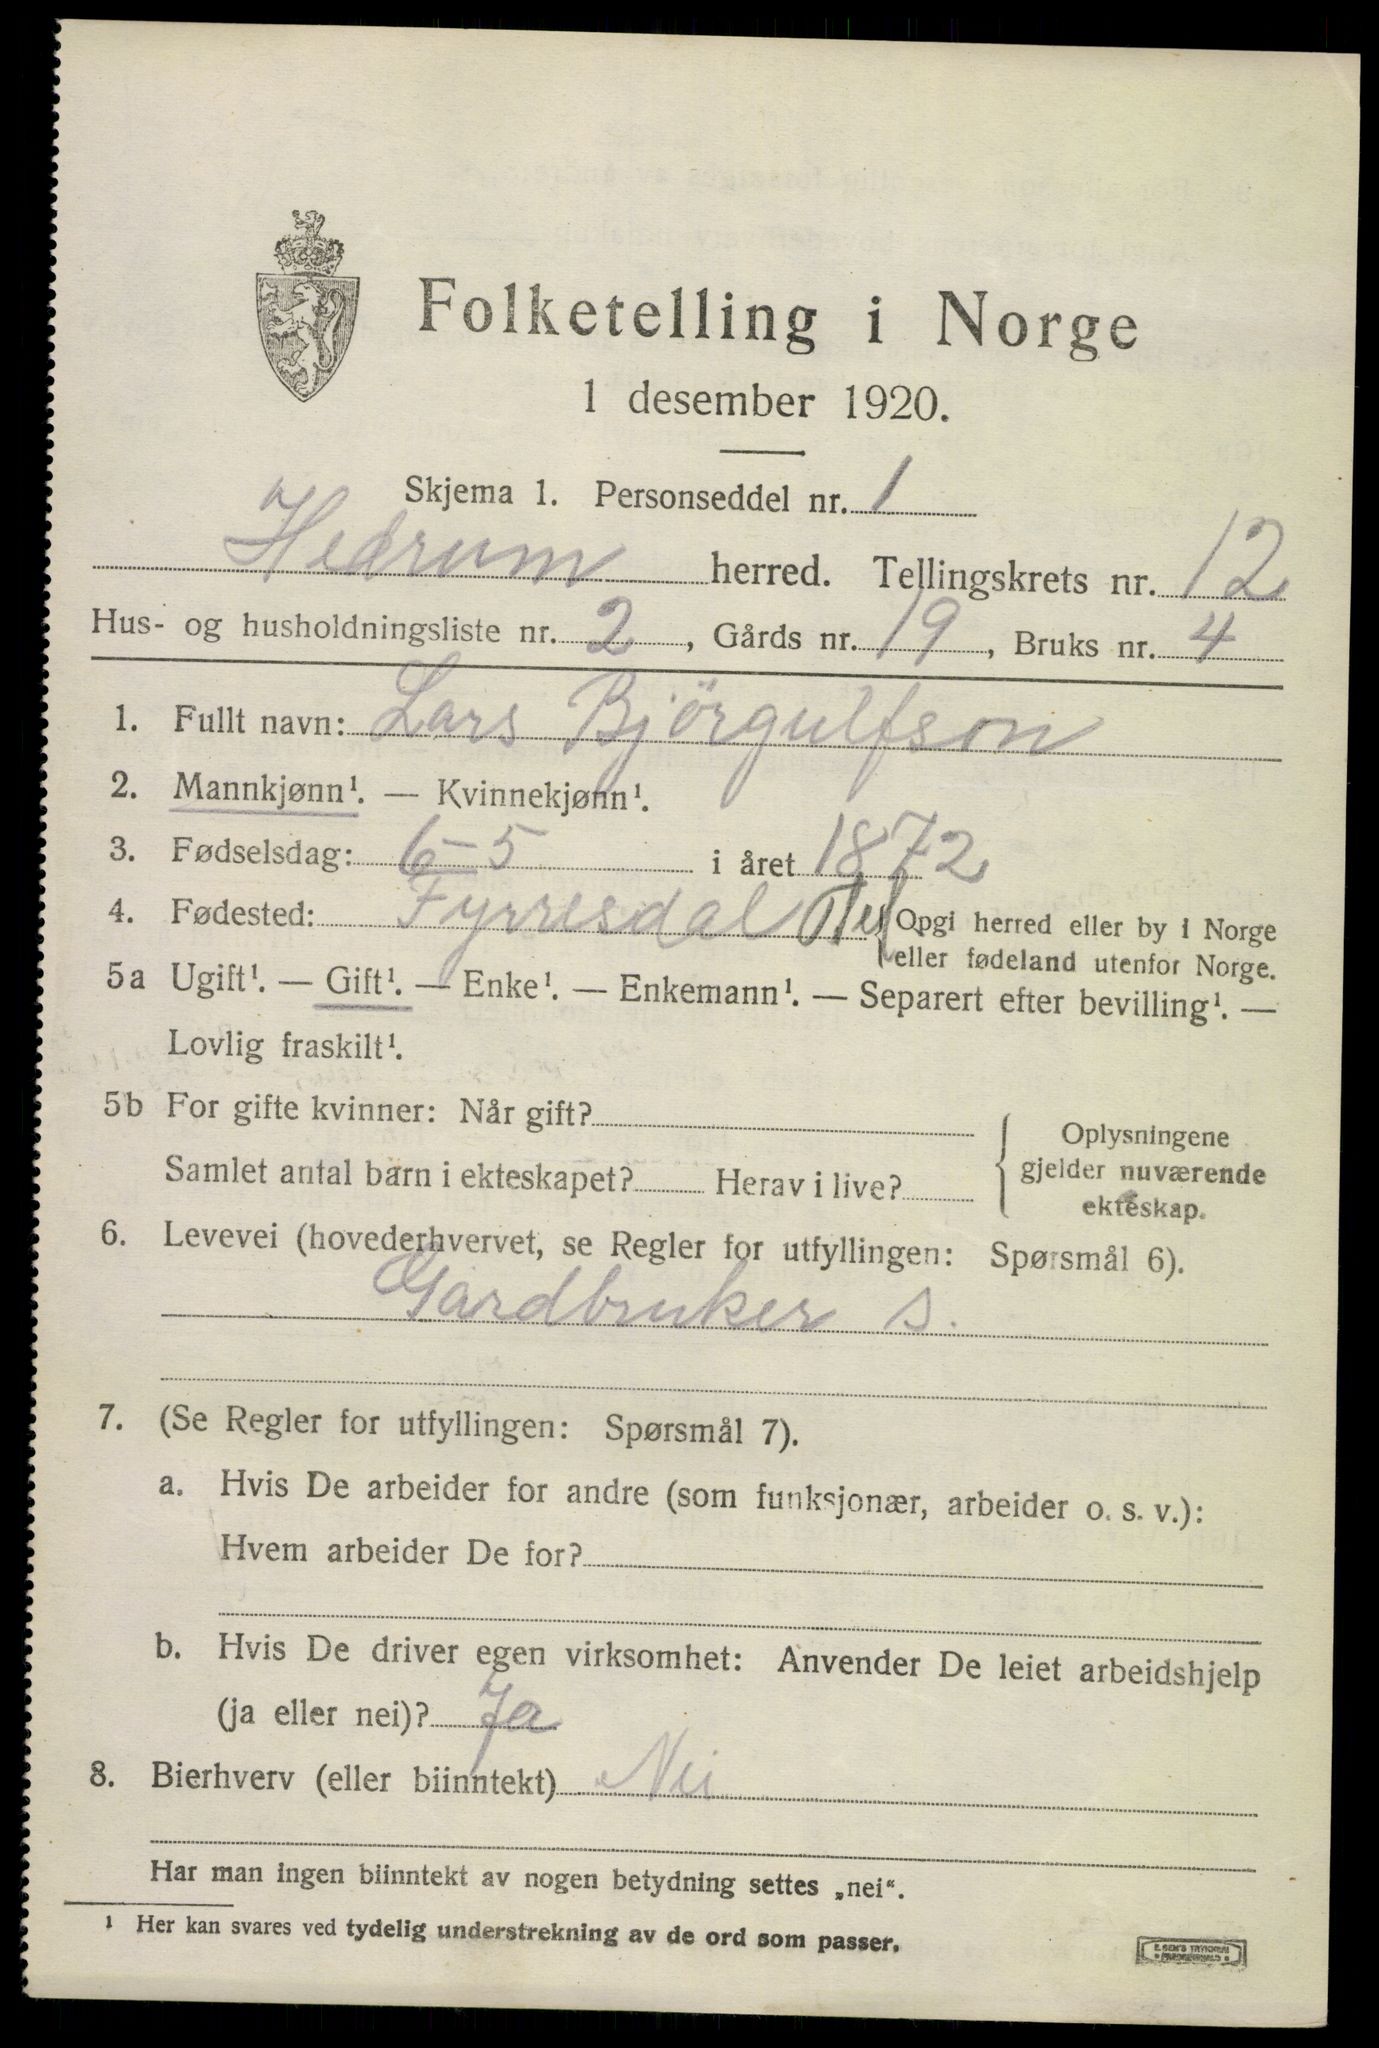 Folketelling i Norge
1 desember 1920.
Skjema 1. Personseddel nr. 1
Hedrum herred. Tellingskrets nr. 12
Hus- og husholdningsliste nr. 2, Gårds nr. 19, Bruks nr. 4
1. Fullt navn: Lars Björgulfson
2. Mannkjønn¹. — Kvinnekjønn¹.
3. Fødselsdag: 6-5 i året 1872
4. Fødested: Fyrresdal Tel { Opgi herred eller by i Norge
eller fødeland utenfor Norge.
5a Ugift¹. — Gift¹. — Enke¹. — Enkemann¹. — Separert efter bevilling¹. —
Lovlig fraskilt¹.
5b For gifte kvinner: Når gift?
Samlet antal barn i ekteskapet? Herav i live?
{ Oplysningene
gjelder nuværende
ekteskap.
6. Levevei (hovederhvervet, se Regler for utfyllingen: Spørsmål 6).
Gardbruker s.
7. (Se Regler for utfyllingen: Spørsmål 7).
a. Hvis De arbeider for andre (som funksjonær, arbeider o. s. v.):
Hvem arbeider De for?
b. Hvis De driver egen virksomhet: Anvender De leiet arbeidshjelp
(ja eller nei)? Ja
8. Bierhverv (eller biinntekt) Nei
Har man ingen biinntekt av nogen betydning settes „nei“.
¹ Her kan svares ved tydelig understrekning av de ord som passer.